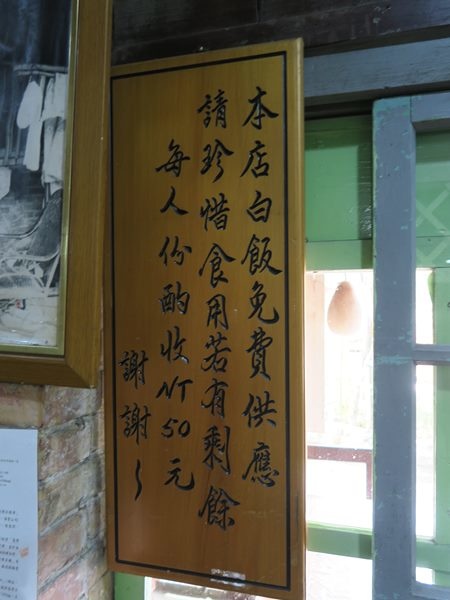 本店白飯免費供應
請珍惜食用若有剩餘
每人份酌收NT50元
謝謝~